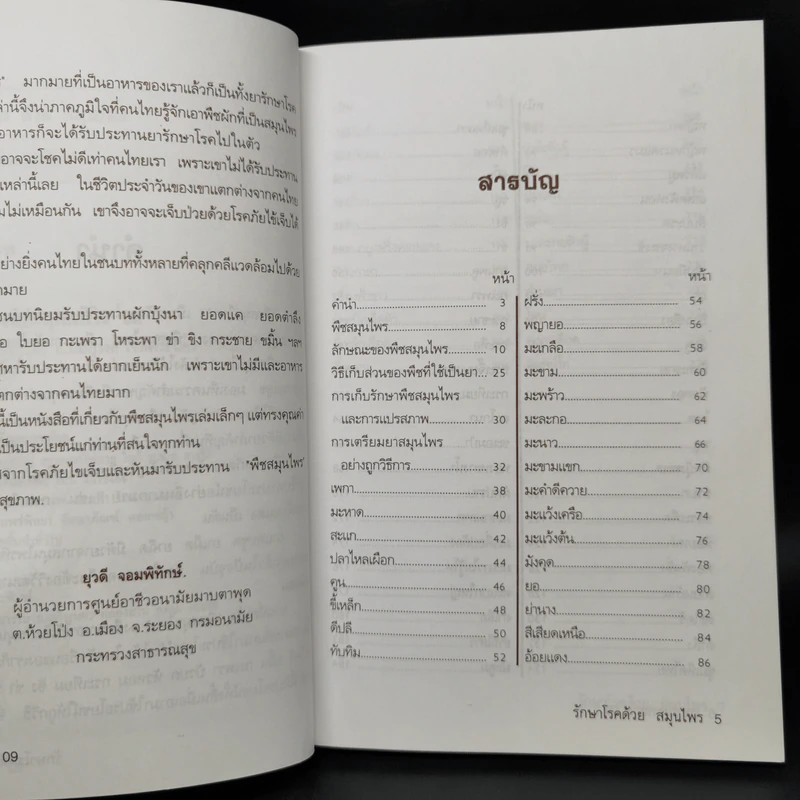 มากมายที่เป็นอาหารของเราแล้วก็เป็นทั้งยารักษาโรค
นี้จึงน่าภาคภูมิใจที่คนไทยรู้จักเอาพืชผักที่เป็นสมุนไพร
อาหารก็จะได้รับประทานยารักษาโรคไปในตัว
อาจจะโชคไม่ดีเท่าคนไทยเรา เพราะเขาไม่ได้รับประทาน
เหล่านี้เลย ในชีวิตประจำวันของเขาแตกต่างจากคนไทย
ไม่เหมือนกัน เขาจึงอาจจะเจ็บป่วยด้วยโรคภัยไข้เจ็บได้
อย่างยิ่งคนไทยในชนบททั้งหลายที่คลุกคลีแวดล้อมไปด้วย
มาย
ชนบทนิยมรับประทานผักบุ้งนา ยอดแค ยอดตำลึง
ใบยอ กะเพรา โหระพา ข่า ขิง กระชาย ขมิ้น ฯลฯ
หารับประทานได้ยากเย็นนัก เพราะเขาไม่มีและอาหาร
แตกต่างจากคนไทยมาก
นี้เป็นหนังสือที่เกี่ยวกับพืชสมุนไพรเล่มเล็กๆ แต่ทรงคุณค่า
เป็นประโยชน์แก่ท่านที่สนใจทุกท่าน
จากโรคภัยไขเจ็บและหันมารับประทาน "พืชสมุนไพร"
สุขภาพ.
ยุวดี จอมพิทักษ์.
ผู้อำนวยการศูนย์อาชีวอนามัยมาบตาพุด
ต.ห้วยโป่ง อ.เมือง จ.ระยอง กรมอนามัย
กระทรวงสาธารณสุข
09
สารบัญ
หน้า
คำนำ 3
พืชสมุนไพร 8
ลักษณะของพืชสมุนไพร 10
วิธีเก็บส่วนของพืชที่ใช้เป็นยา 25
การเก็บรักษาพืชสมุนไพร
และการแปรสภาพ 30
การเตรียมยาสมุนไพร
อย่างถูกวิธีการ 32
เพกา 38
มะหาด 40
สะแก 42
ปลาไหลเผือก 44
คูน 46
ขี้เหล็ก 48
ดีปลี 50
ทับทิม 52
หน้า
ฝรั่ง 54
พญายอ 56
มะเกลือ 58
มะขาม 60
มะพร้าว 62
มะละกอ 64
มะนาว 66
มะขามแขก 70
มะคำดีควาย 72
มะแว้งเครือ 74
มะแว้งต้น 76
มังคุด 78
ยอ 80
ย่านาง 82
สีเสียดเหนือ 84
อ้อยแดง 86
รักษาโรคด้วย สมุนไพร 5